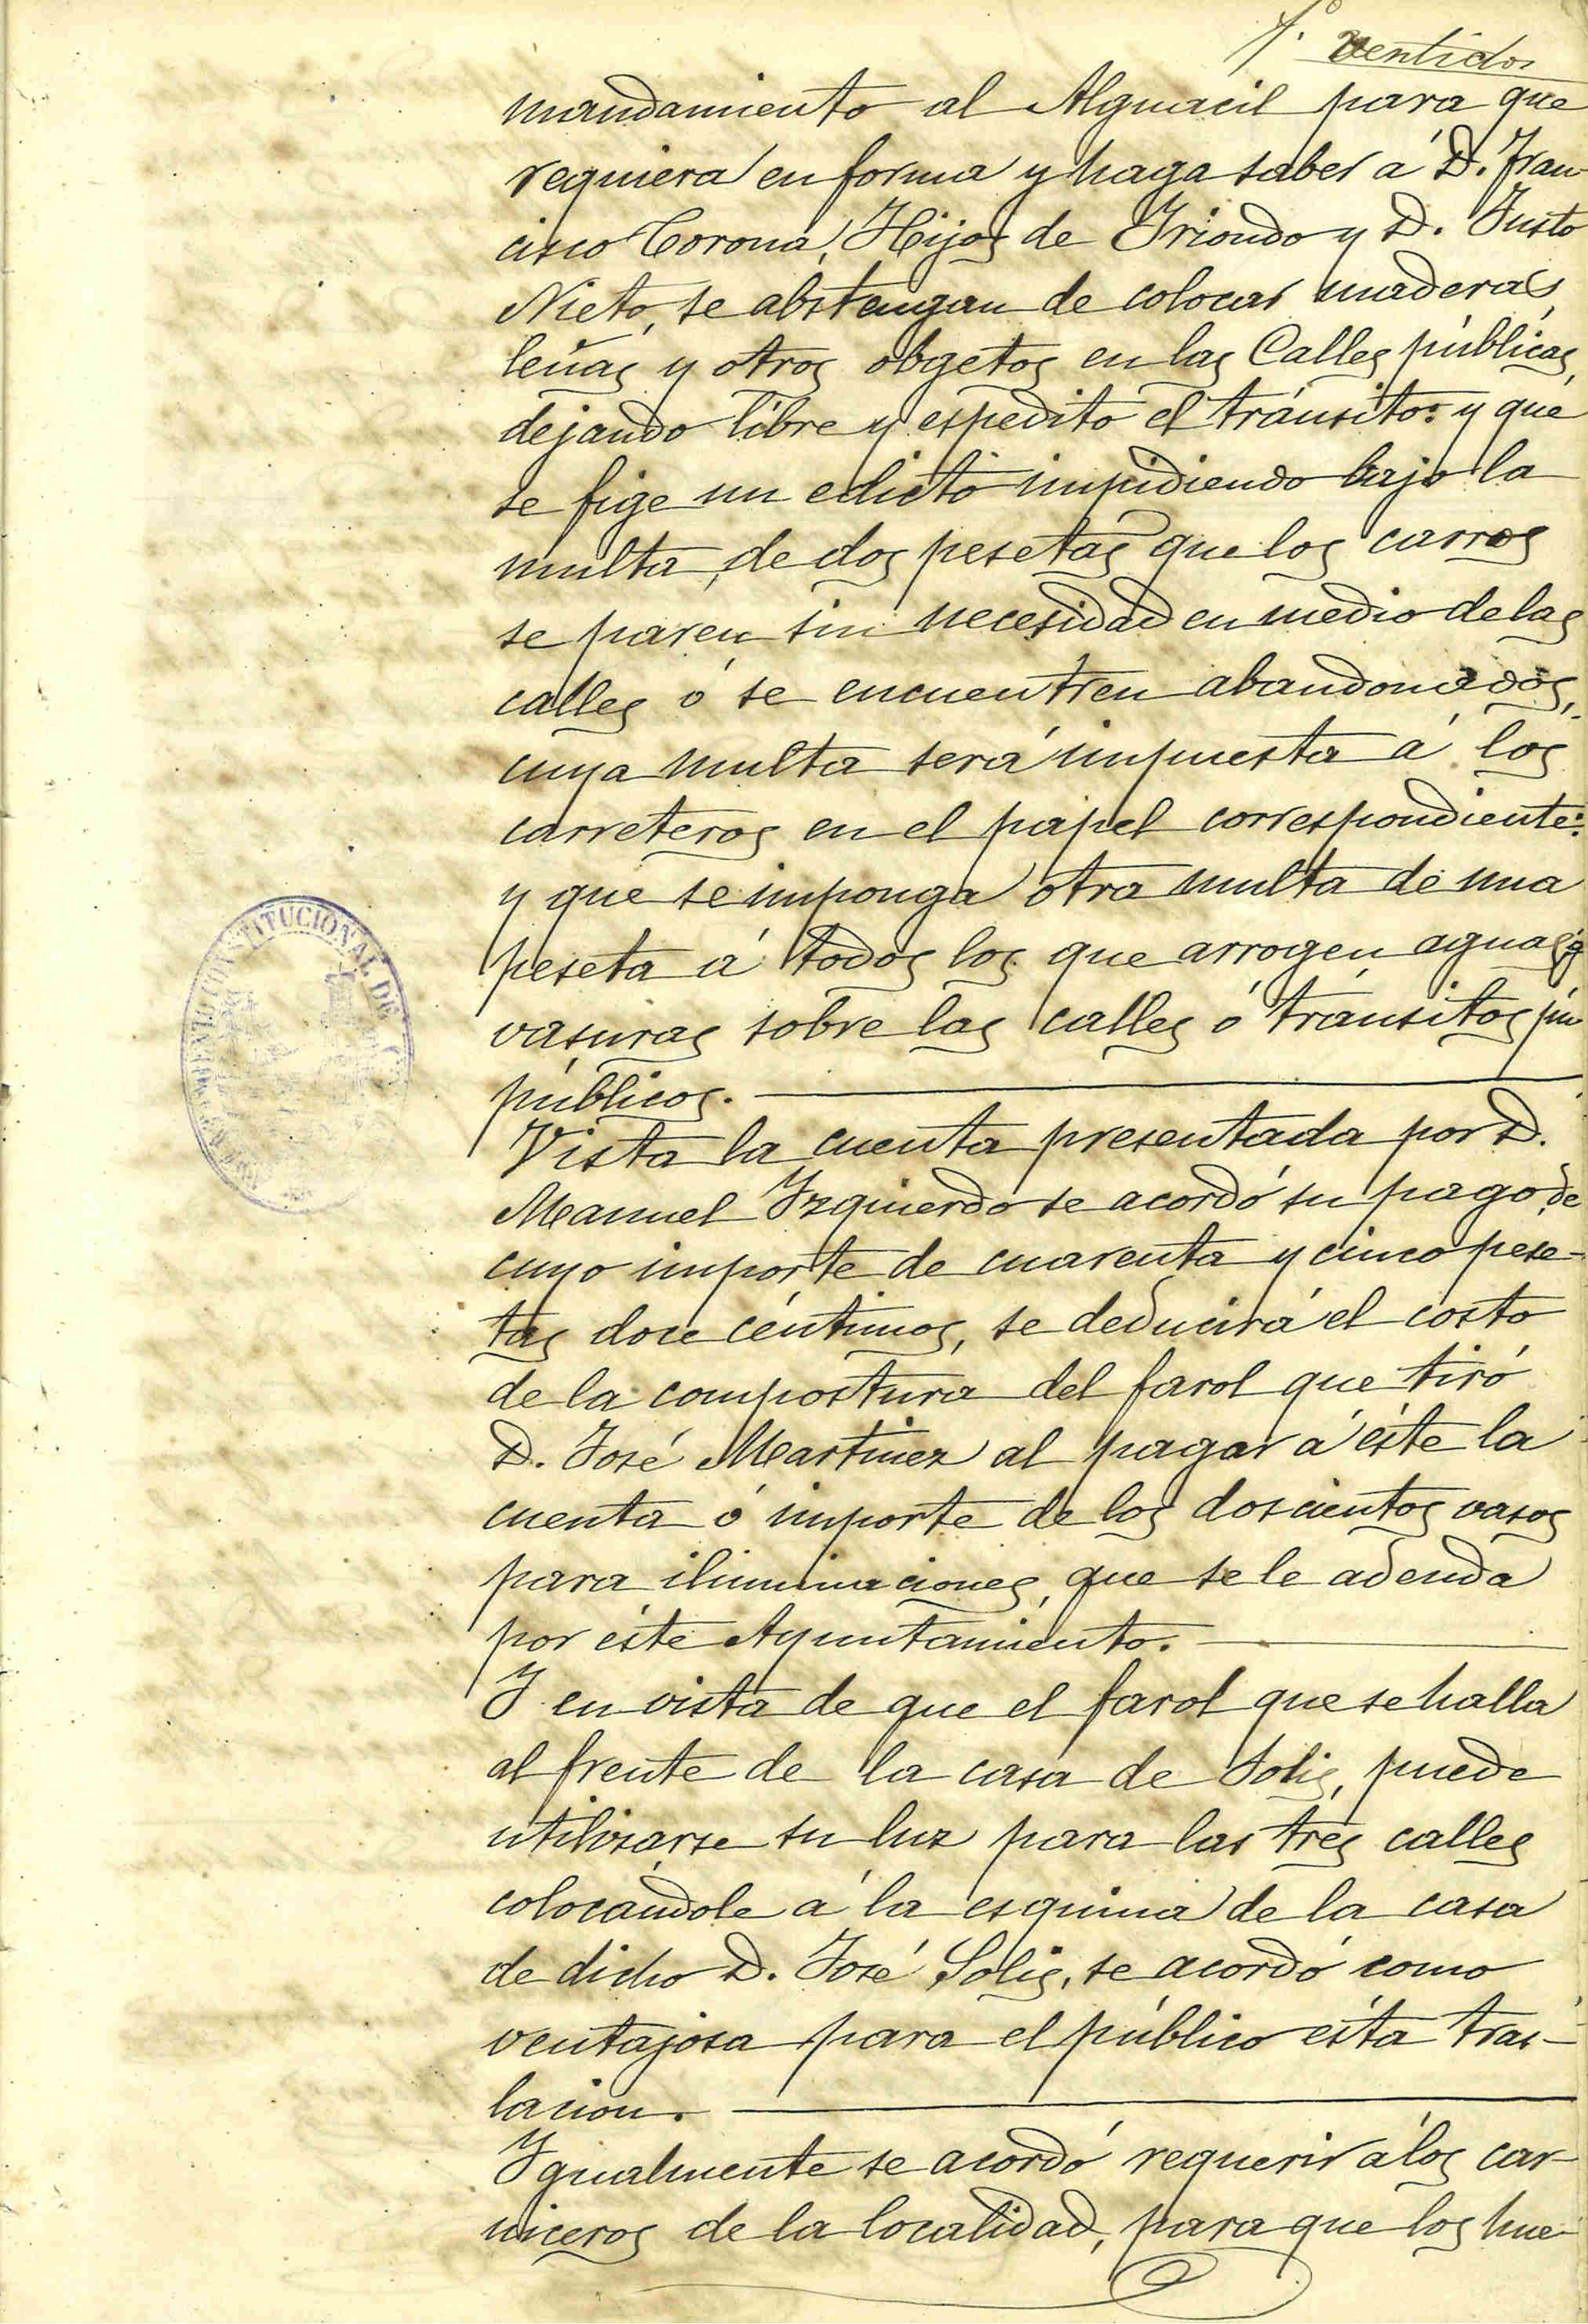 f.º ventidos
mandamiento al Alguacil para que
requiera en forma y haga saber á D. Fran-
cisco Corona, Hijos de Iriondo y D. Justo
Nieto, se abstengan de colocar maderas,
leñas y otros obgetos en las Calles públicas,
dejando libre y espedito el tránsito: y que
se fige un edicto impidiendo bajo la
multa de dos pesetas que los carros
se paren sin necesidad en medio de las
calles ó se encuentren abandonados,
cuya multa será impuesta á los
carreteros en el papel correspondiente:
y que se imponga otra multa de una
peseta á todos los que arrogen aguas y
vasuras sobre las calles ó tránsitos pú
públicos.
Vista la cuenta presentada por D.
Manuel Izquierdo se acordó su pago, de
cuyo importe de cuarenta y cinco pese-
tas doce céntimos, se deducirá el costo
de la compostura del farol que tiró
D. José Martinez al pagar á éste la
cuenta ó importe de los doscientos vasos
para iluminaciones, que se le adeuda
por éste Ayuntamiento.
Y en vista de que el farol que se halla
al frente de la casa de Solis, puede
utilizarse su luz para las tres calles
colocándole á la esquina de la casa
de dicho D. José Solis, se acordó como
ventajosa para el público ésta tras-
lacion.
Igualmente se acordó requerir á los car-
niceros de la localidad, para que los hue-
CONSTITUCIONAL DE